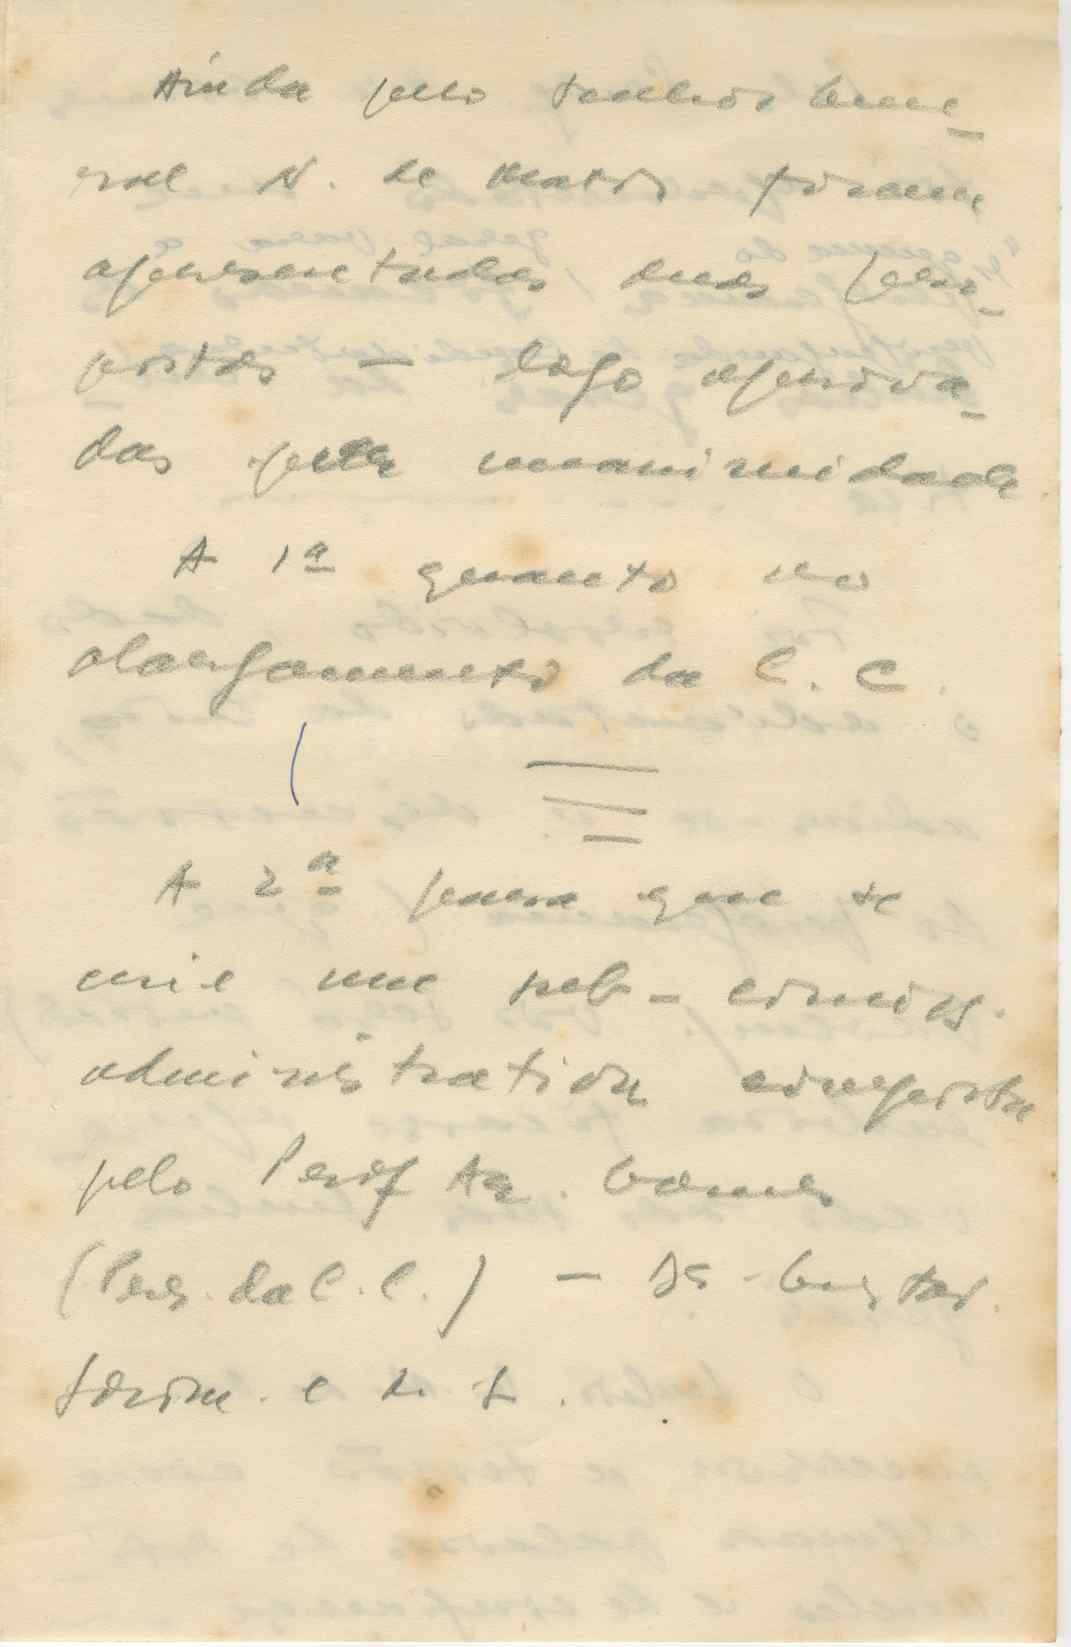 Ainda pelo senhor Gene-
ral N. de Matos foram
apresentadas duas pro-
postas — logo aprova-
das pela unanimidade
A 1ª quanto ao
alargamento da C. C.
A 2ª para que se
crie uma sub-comiss.
administrativa composta
pelo Prof Az. Gomes
(Pres. da C. C.) — Dr.
e